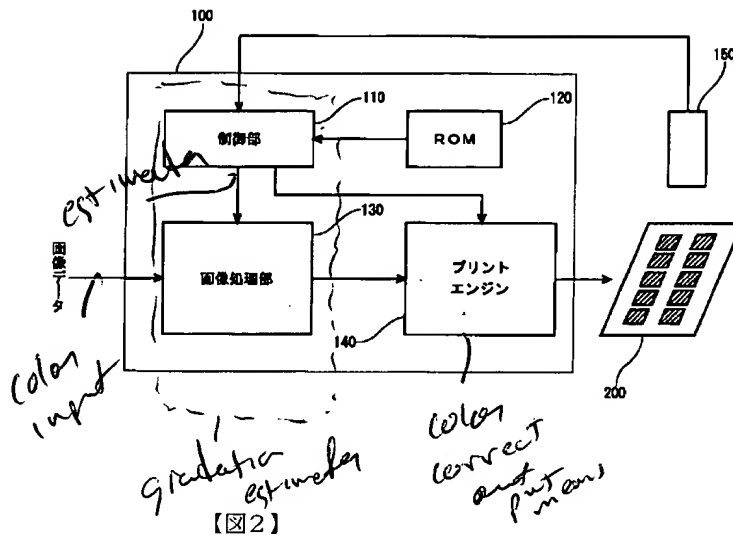 100
150
110
120
制御部
ROM
estimator
130
画像データ
画像処理部
プリント
エンジン
140
200
color
input
gradation
estimator
color
correct
out
put means
【図2】